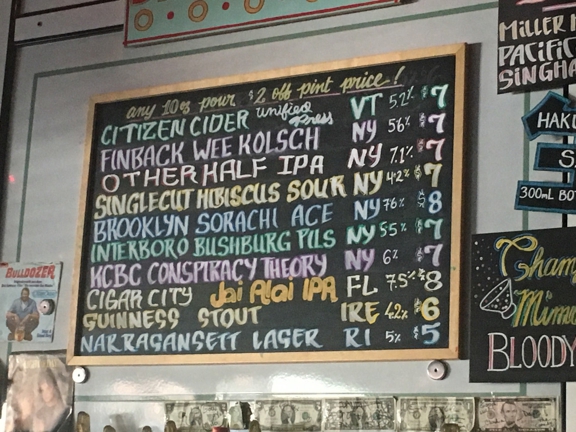 any 10oz pour $2 off pint price!
CITIZEN CIDER unified press VT 5.2% $7
FINBACK WEE KOLSCH NY 5.6% $7
OTHER HALF IPA NY 7.1% $7
SINGLECUT HIBISCUS SOUR NY 4.2% $7
BROOKLYN SORACHI ACE NY 7.6% $8
INTERBORO BUSHBURG PILS NY 5.5% $7
KCBC CONSPIRACY THEORY NY 6% $7
CIGAR CITY Jai Alai IPA FL 7.5% $8
GUINNESS STOUT IRE 4.2% $6
NARRAGANSETT LAGER RI 5% $5
MILLER H
PACIFIC
SINGHA
HAKU
S
300mL BOT
Cham
Mimo
BLOODY
BULLDOZER